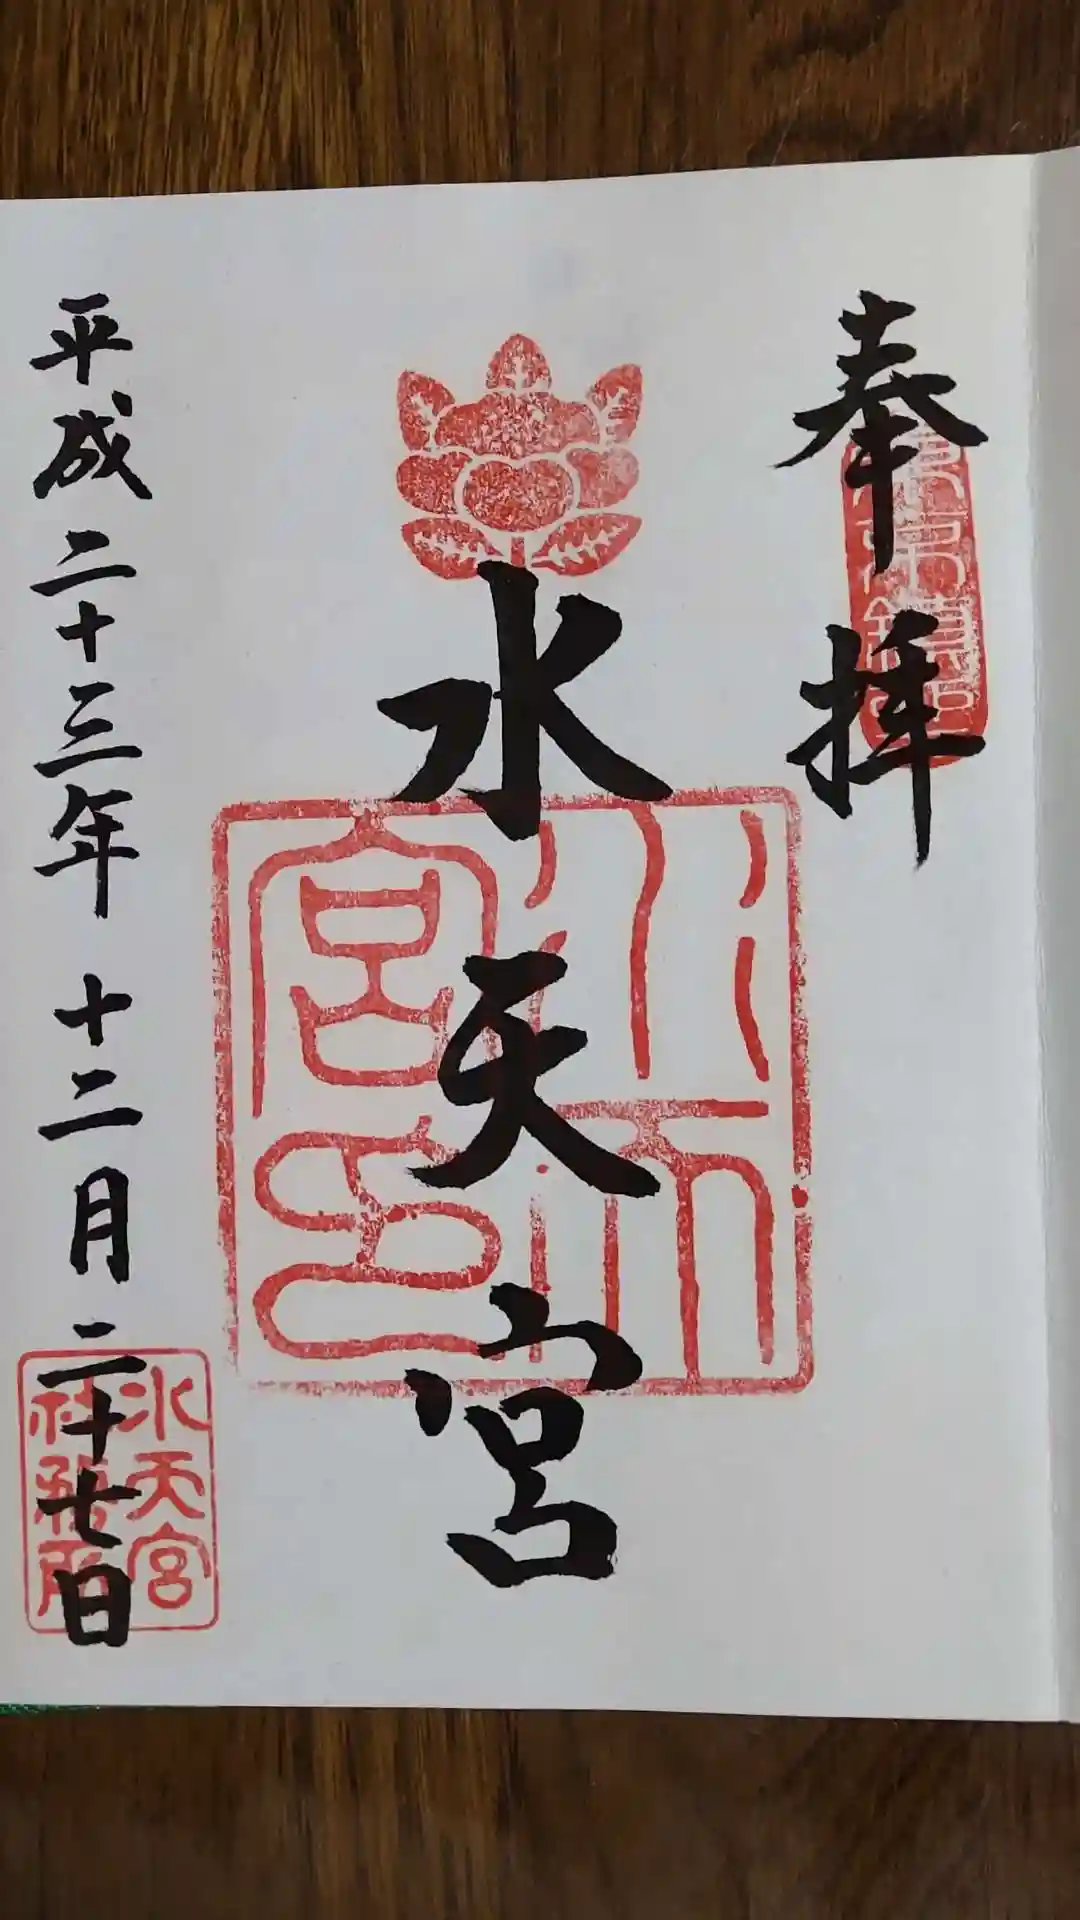 奉拝
水天宮
水天宮印
平成二十三年 十二月 二十七日
水天宮
社務所